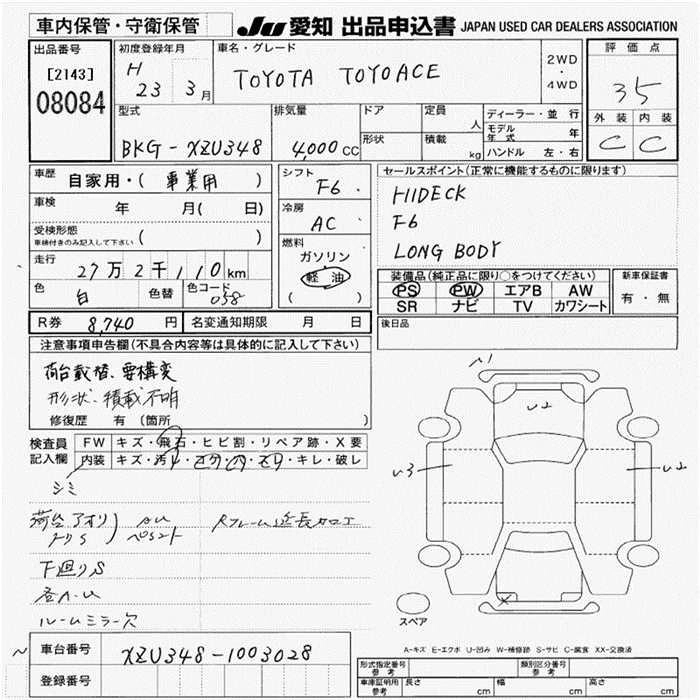 車内保管・守衛保管
JU 愛知 出品申込書 JAPAN USED CAR DEALERS ASSOCIATION
出品番号
[2143]
08084
初度登録年月
H 23 3月
車名・グレード
TOYOTA TOYOACE
2WD・4WD
評価点
35
外装 内装
C C
型式
BKG-XZU348
排気量
4,000 CC
ドア
形状
定員 人
積載 kg
ディーラー・並行
モデル年式 年
ハンドル 左・右
車歴 自家用・( 事業用 )
車検 年 月( 日)
受検形態
車検付きのみ記入して下さい ( )
走行 27万2千110km
色 白 色替 色コード 058
シフト F6
冷房 AC
燃料
ガソリン
軽油
( )
セールスポイント(正常に機能するものに限ります)
HIDECK
F6
LONG BODY
装備品(純正品に限り○をつけてください)
PS PW エアB AW
SR ナビ TV カワシート
新車保証書
有・無
R券 8,740円 名変通知期限 月 日
後日品
注意事項申告欄(不具合内容等は具体的に記入して下さい)
荷台載替、要構変
形状、積載不明
修復歴 有 (箇所 )
検査員記入欄
FW キズ・飛石・ヒビ割・リペア跡・X要
内装 キズ・汚・コゲ・穴・スリ・キレ・破レ
シミ
荷台アオリ AU
トリS ペイント
Rフレーム延長加工
下廻りS
全A・U
ルームミラー欠
A1
U2
U3
U2
X
スペア
A-キズ E-エクボ U-凹み W-補修跡 S-サビ C-腐食 XX-交換済
車台番号 XZU348-1003028
登録番号
形式指定番号 参考
類別区分番号 参考
車庫証明用 参考 長さ cm 幅 cm 高さ cm